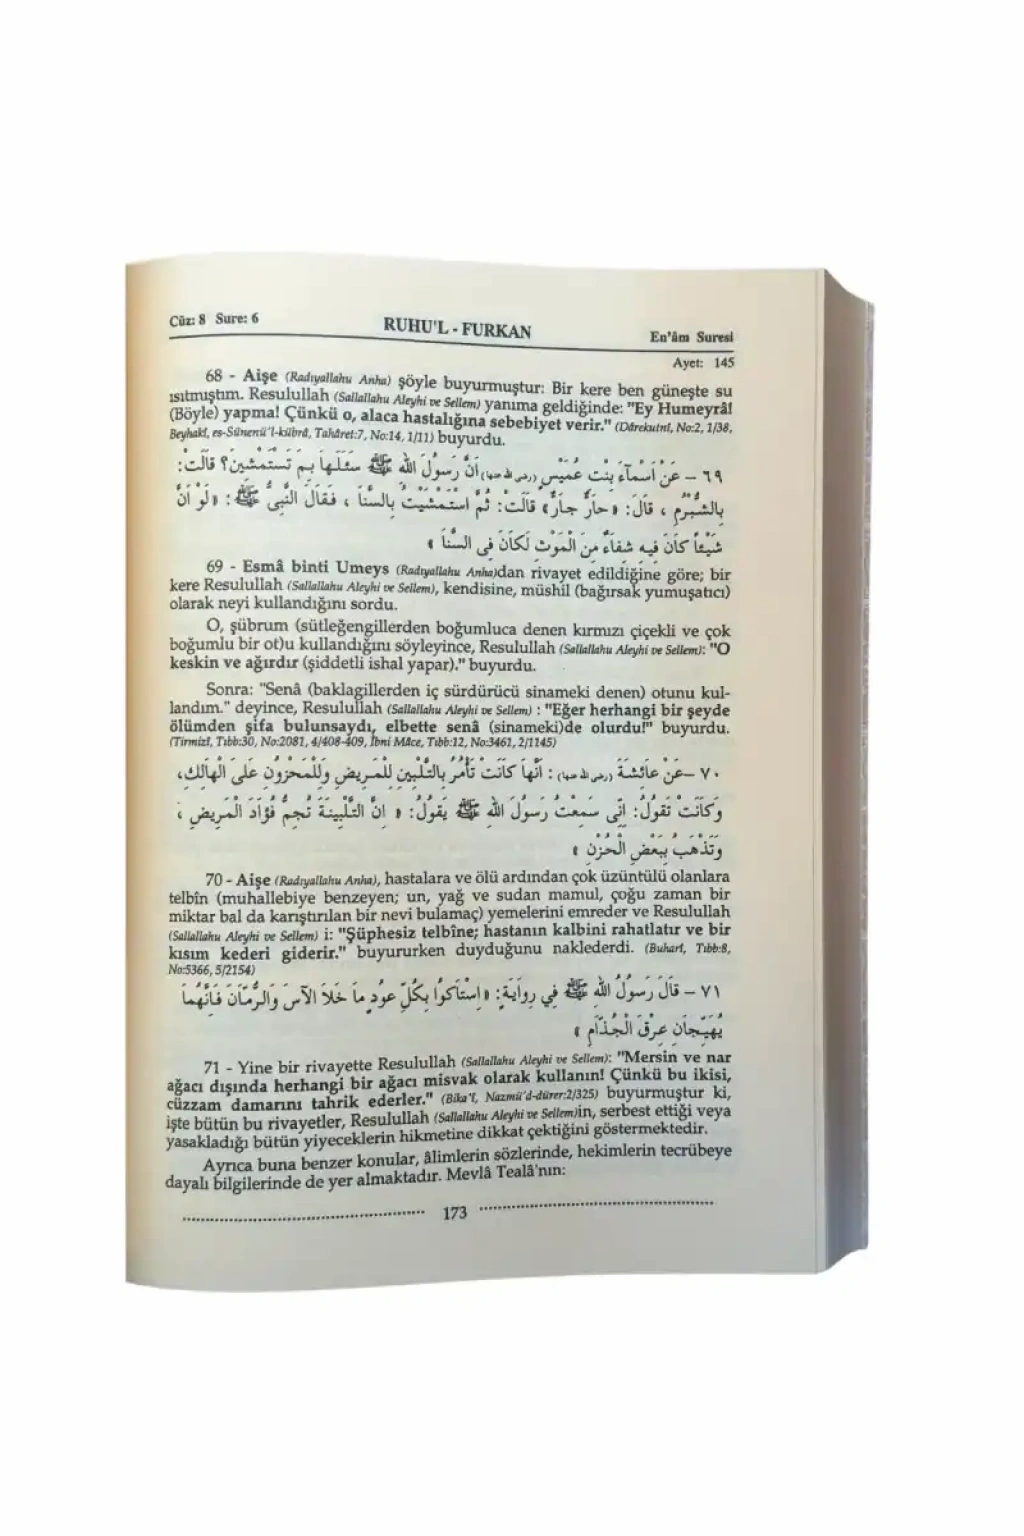 Cüz: 8 Sure: 6
RUHU'L - FURKAN
En'âm Suresi
Ayet: 145
68 - Aişe (Radıyallahu Anha) şöyle buyurmuştur: Bir kere ben güneşte su
ısıtmıştım. Resulullah (Sallallahu Aleyhi ve Sellem) yanıma geldiğinde: "Ey Humeyrâ!
(Böyle) yapma! Çünkü o, alaca hastalığına sebebiyet verir." (Dârekutnî, No:2, 1/38,
Beyhakî, es-Sünenü'l-kübrâ, Tahâret:7, No:14, 1/11) buyurdu.
٦٩ – عَنْ اَسْمَآءَ بِنْتِ عُمَيْسٍ (رضى الله عنها) اَنَّ رَسُولَ اللهِ ﷺ سَئَلَهَا بِمَ تَسْتَمْشِينَ؟ قَالَتْ:
بِالشُّبْرُمِ ، قَالَ: «حَارٌّ جَارٌّ» قَالَتْ: ثُمَّ اسْتَمْشَيْتُ بِالسَّنَا ، فَقَالَ النَّبِىُّ ﷺ: «لَوْ اَنَّ
شَيْئاً كَانَ فِيهِ شِفَاءٌ مِنَ الْمَوْتِ لَكَانَ فِى السَّنَا »
69 - Esmâ binti Umeys (Radıyallahu Anha)dan rivayet edildiğine göre; bir
kere Resulullah (Sallallahu Aleyhi ve Sellem), kendisine, müshil (bağırsak yumuşatıcı)
olarak neyi kullandığını sordu.
O, şübrum (sütleğengillerden boğumluca denen kırmızı çiçekli ve çok
boğumlu bir ot)u kullandığını söyleyince, Resulullah (Sallallahu Aleyhi ve Sellem): "O
keskin ve ağırdır (şiddetli ishal yapar)." buyurdu.
Sonra: "Senâ (baklagillerden iç sürdürücü sinameki denen) otunu kul-
landım." deyince, Resulullah (Sallallahu Aleyhi ve Sellem) : "Eğer herhangi bir şeyde
ölümden şifa bulunsaydı, elbette senâ (sinameki)de olurdu!" buyurdu.
(Tirmizî, Tıbb:30, No:2081, 4/408-409, İbni Mâce, Tıbb:12, No:3461, 2/1145)
٧٠ –عَنْ عَائِشَةَ (رضى الله عنها) : اَنَّهَا كَانَتْ تَأْمُرُ بِالتَّلْبِينِ لِلْمَرِيضِ وَلِلْمَحْزُونِ عَلَى الْهَالِكِ،
وَكَانَتْ تَقُولُ: اِنِّى سَمِعْتُ رَسُولَ اللهِ ﷺ يَقُولُ: « اِنَّ التَّلْبِينَةَ تُجِمُّ فُؤَادَ الْمَرِيضِ ،
وَتَذْهَبُ بِبَعْضِ الْحُزْنِ »
70 - Aişe (Radıyallahu Anha), hastalara ve ölü ardından çok üzüntülü olanlara
telbîn (muhallebiye benzeyen; un, yağ ve sudan mamul, çoğu zaman bir
miktar bal da karıştırılan bir nevi bulamaç) yemelerini emreder ve Resulullah
(Sallallahu Aleyhi ve Sellem) i: "Şüphesiz telbîne; hastanın kalbini rahatlatır ve bir
kısım kederi giderir." buyururken duyduğunu naklederdi. (Buharî, Tıbb:8,
No:5366, 5/2154)
٧١ – قَالَ رَسُولُ اللهِ ﷺ فِي رِوَايَةٍ: «اِسْتَاكُوا بِكُلِّ عُودٍ مَا خَلاَ الآسَ وَالرُّمَّانَ فَاِنَّهُمَا
يُهَيِّجَانِ عِرْقَ الْجُذَامِ »
71 - Yine bir rivayette Resulullah (Sallallahu Aleyhi ve Sellem): "Mersin ve nar
ağacı dışında herhangi bir ağacı misvak olarak kullanın! Çünkü bu ikisi,
cüzzam damarını tahrik ederler." (Bika'î, Nazmü'd-dürer:2/325) buyurmuştur ki,
işte bütün bu rivayetler, Resulullah (Sallallahu Aleyhi ve Sellem)in, serbest ettiği veya
yasakladığı bütün yiyeceklerin hikmetine dikkat çektiğini göstermektedir.
Ayrıca buna benzer konular, âlimlerin sözlerinde, hekimlerin tecrübeye
dayalı bilgilerinde de yer almaktadır. Mevlâ Tealâ'nın:
173